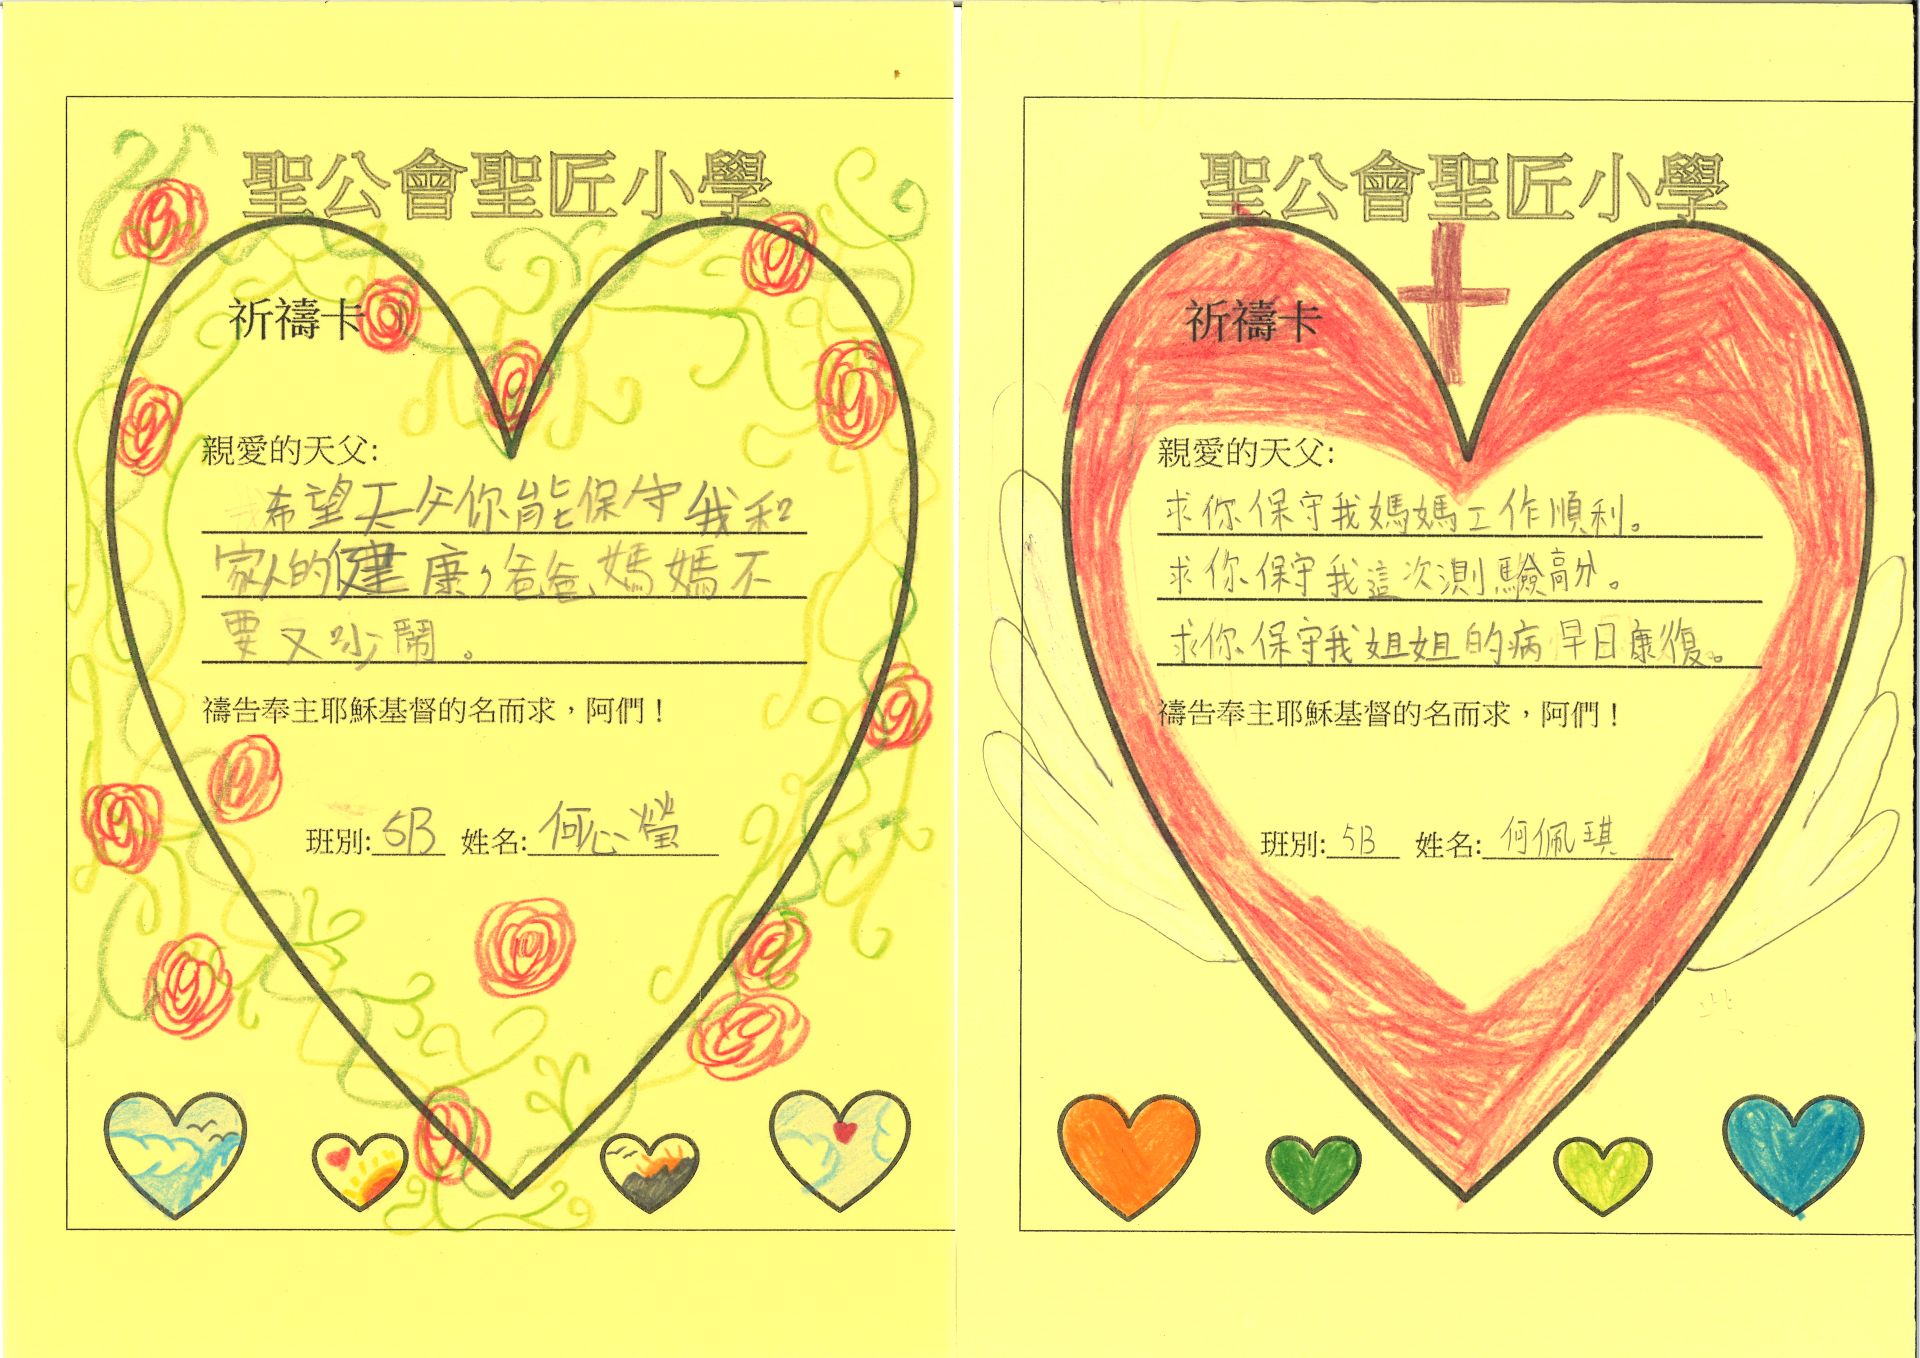 聖公會聖匠小學
祈禱卡
親愛的天父:
希望天父你能保守我和
家人的健康,爸爸、媽媽不
要又吵鬧。
禱告奉主耶穌基督的名而求，阿們！
班別: 5B 姓名: 何心瑩
聖公會聖匠小學
祈禱卡
親愛的天父:
求你保守我媽媽工作順利。
求你保守我這次測驗高分。
求你保守我姐姐的病早日康復。
禱告奉主耶穌基督的名而求，阿們！
班別: 5B 姓名: 何佩琪